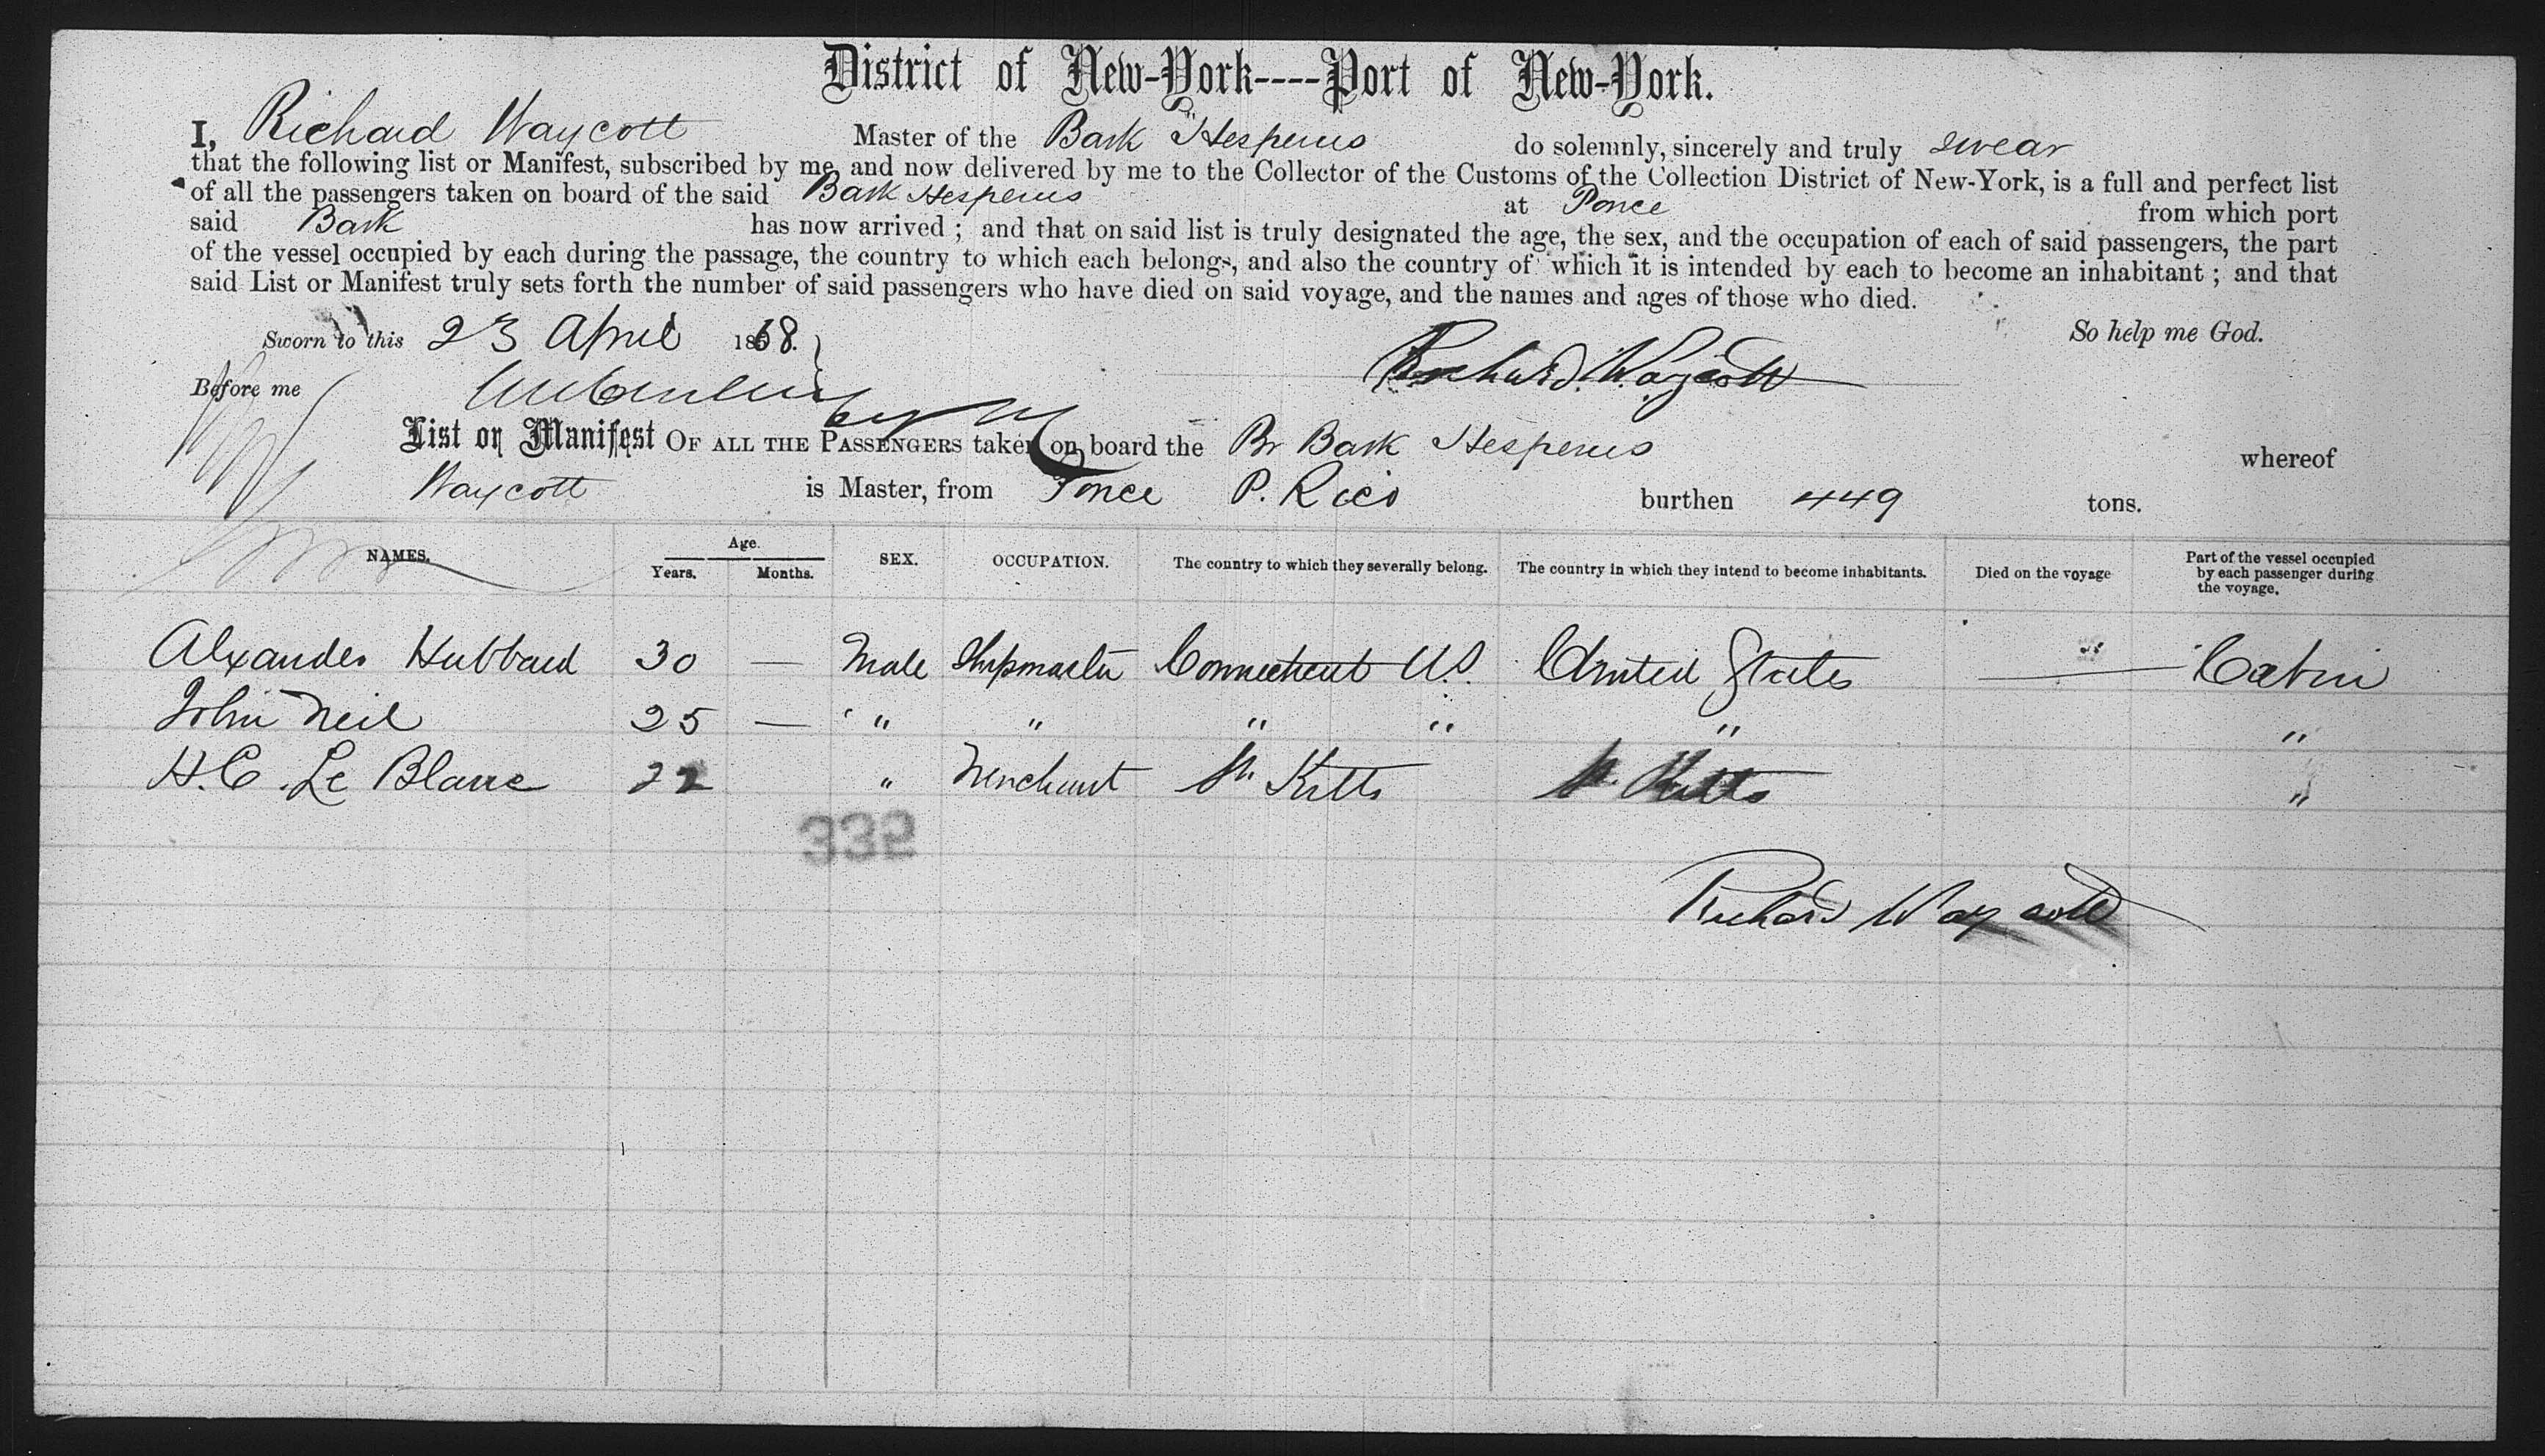 District of New-York----Port of New-York.
I, Richard Waycott Master of the Bark "Hesperus do solemnly, sincerely and truly swear
that the following list or Manifest, subscribed by me, and now delivered by me to the Collector of the Customs of the Collection District of New-York, is a full and perfect list
of all the passengers taken on board of the said Bark Hesperus at Ponce from which port
said Bark has now arrived ; and that on said list is truly designated the age, the sex, and the occupation of each of said passengers, the part
of the vessel occupied by each during the passage, the country to which each belongs, and also the country of which it is intended by each to become an inhabitant ; and that
said List or Manifest truly sets forth the number of said passengers who have died on said voyage, and the names and ages of those who died.
Sworn to this 23 April 1868. So help me God.
Richard Waycott
Before me
List or Manifest OF ALL THE PASSENGERS taken on board the Br Bark Hesperus whereof
Waycott is Master, from Ponce P. Rico burthen 449 tons.
NAMES. Age. Years. Months. SEX. OCCUPATION. The country to which they severally belong. The country in which they intend to become inhabitants. Died on the voyage Part of the vessel occupied by each passenger during the voyage.
Alxander Hubbard 30 — Male Shipmaster Connecticut U.S. United States — Cabin
John Neil 25 — " " " " " "
H.C. Le Blanc 22 " Merchant St. Kitts St. Kitts "
332
Richard Waycott